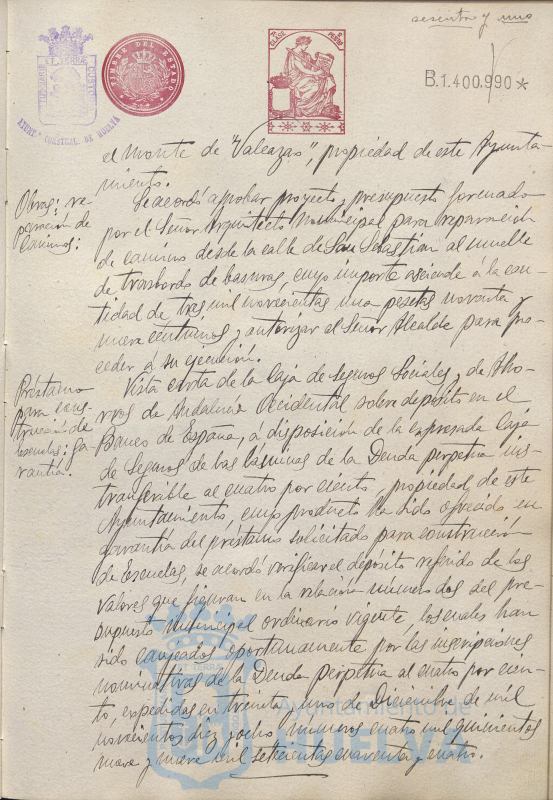 sesenta y uno
PORTUS MARIS ET TERRÆ CUSTODIA
AYUNT.º CONSTCNAL. DE HUELVA
TIMBRE DEL ESTADO
8ª CLASE
1 PESETA
B.1.400.990*
el monte de "Valcazao", propiedad de este Ayunta-
miento.
Obras: re-
paración de
caminos:
Se acordó aprobar proyecto y presupuesto formado
por el Señor Arquitecto Municipal para reparación
de camino desde la calle de San Sebastian al muelle
de trasbordo de basuras, cuyo importe asciende á la can-
tidad de tres mil novecientas una pesetas noventa y
nueve centimos, y autorizar al Señor Alcalde para pro-
ceder á su ejecución.
Préstamo
para cons-
trucción de
Escuelas: ga-
rantía.
Vista carta de la Caja de Seguros Sociales y de Aho-
rros de Andalucía Occidental sobre depósito en el
Banco de España, á disposición de la expresada Caja
de Seguros de las láminas de la Deuda perpetua ins-
transferible al cuatro por ciento propiedad de este
Ayuntamiento, cuyo producto ha sido ofrecido en
garantía del prestamo solicitado para construcción
de Escuelas, se acordó verificar el depósito referido de los
valores que figuran en la relación número dos del pre-
supuesto municipal ordinario vigente, los cuales han
sido canjeados oportunamente por las inscripciones
nominativas de la Deuda Perpetua al cuatro por cien-
to, expedidas en treinta y uno de Diciembre de mil
novecientos diez y ocho números cuatro mil quinientos
nueve y nueve mil setecientos cuarenta y cuatro.
Ayuntamiento de
HUELVA